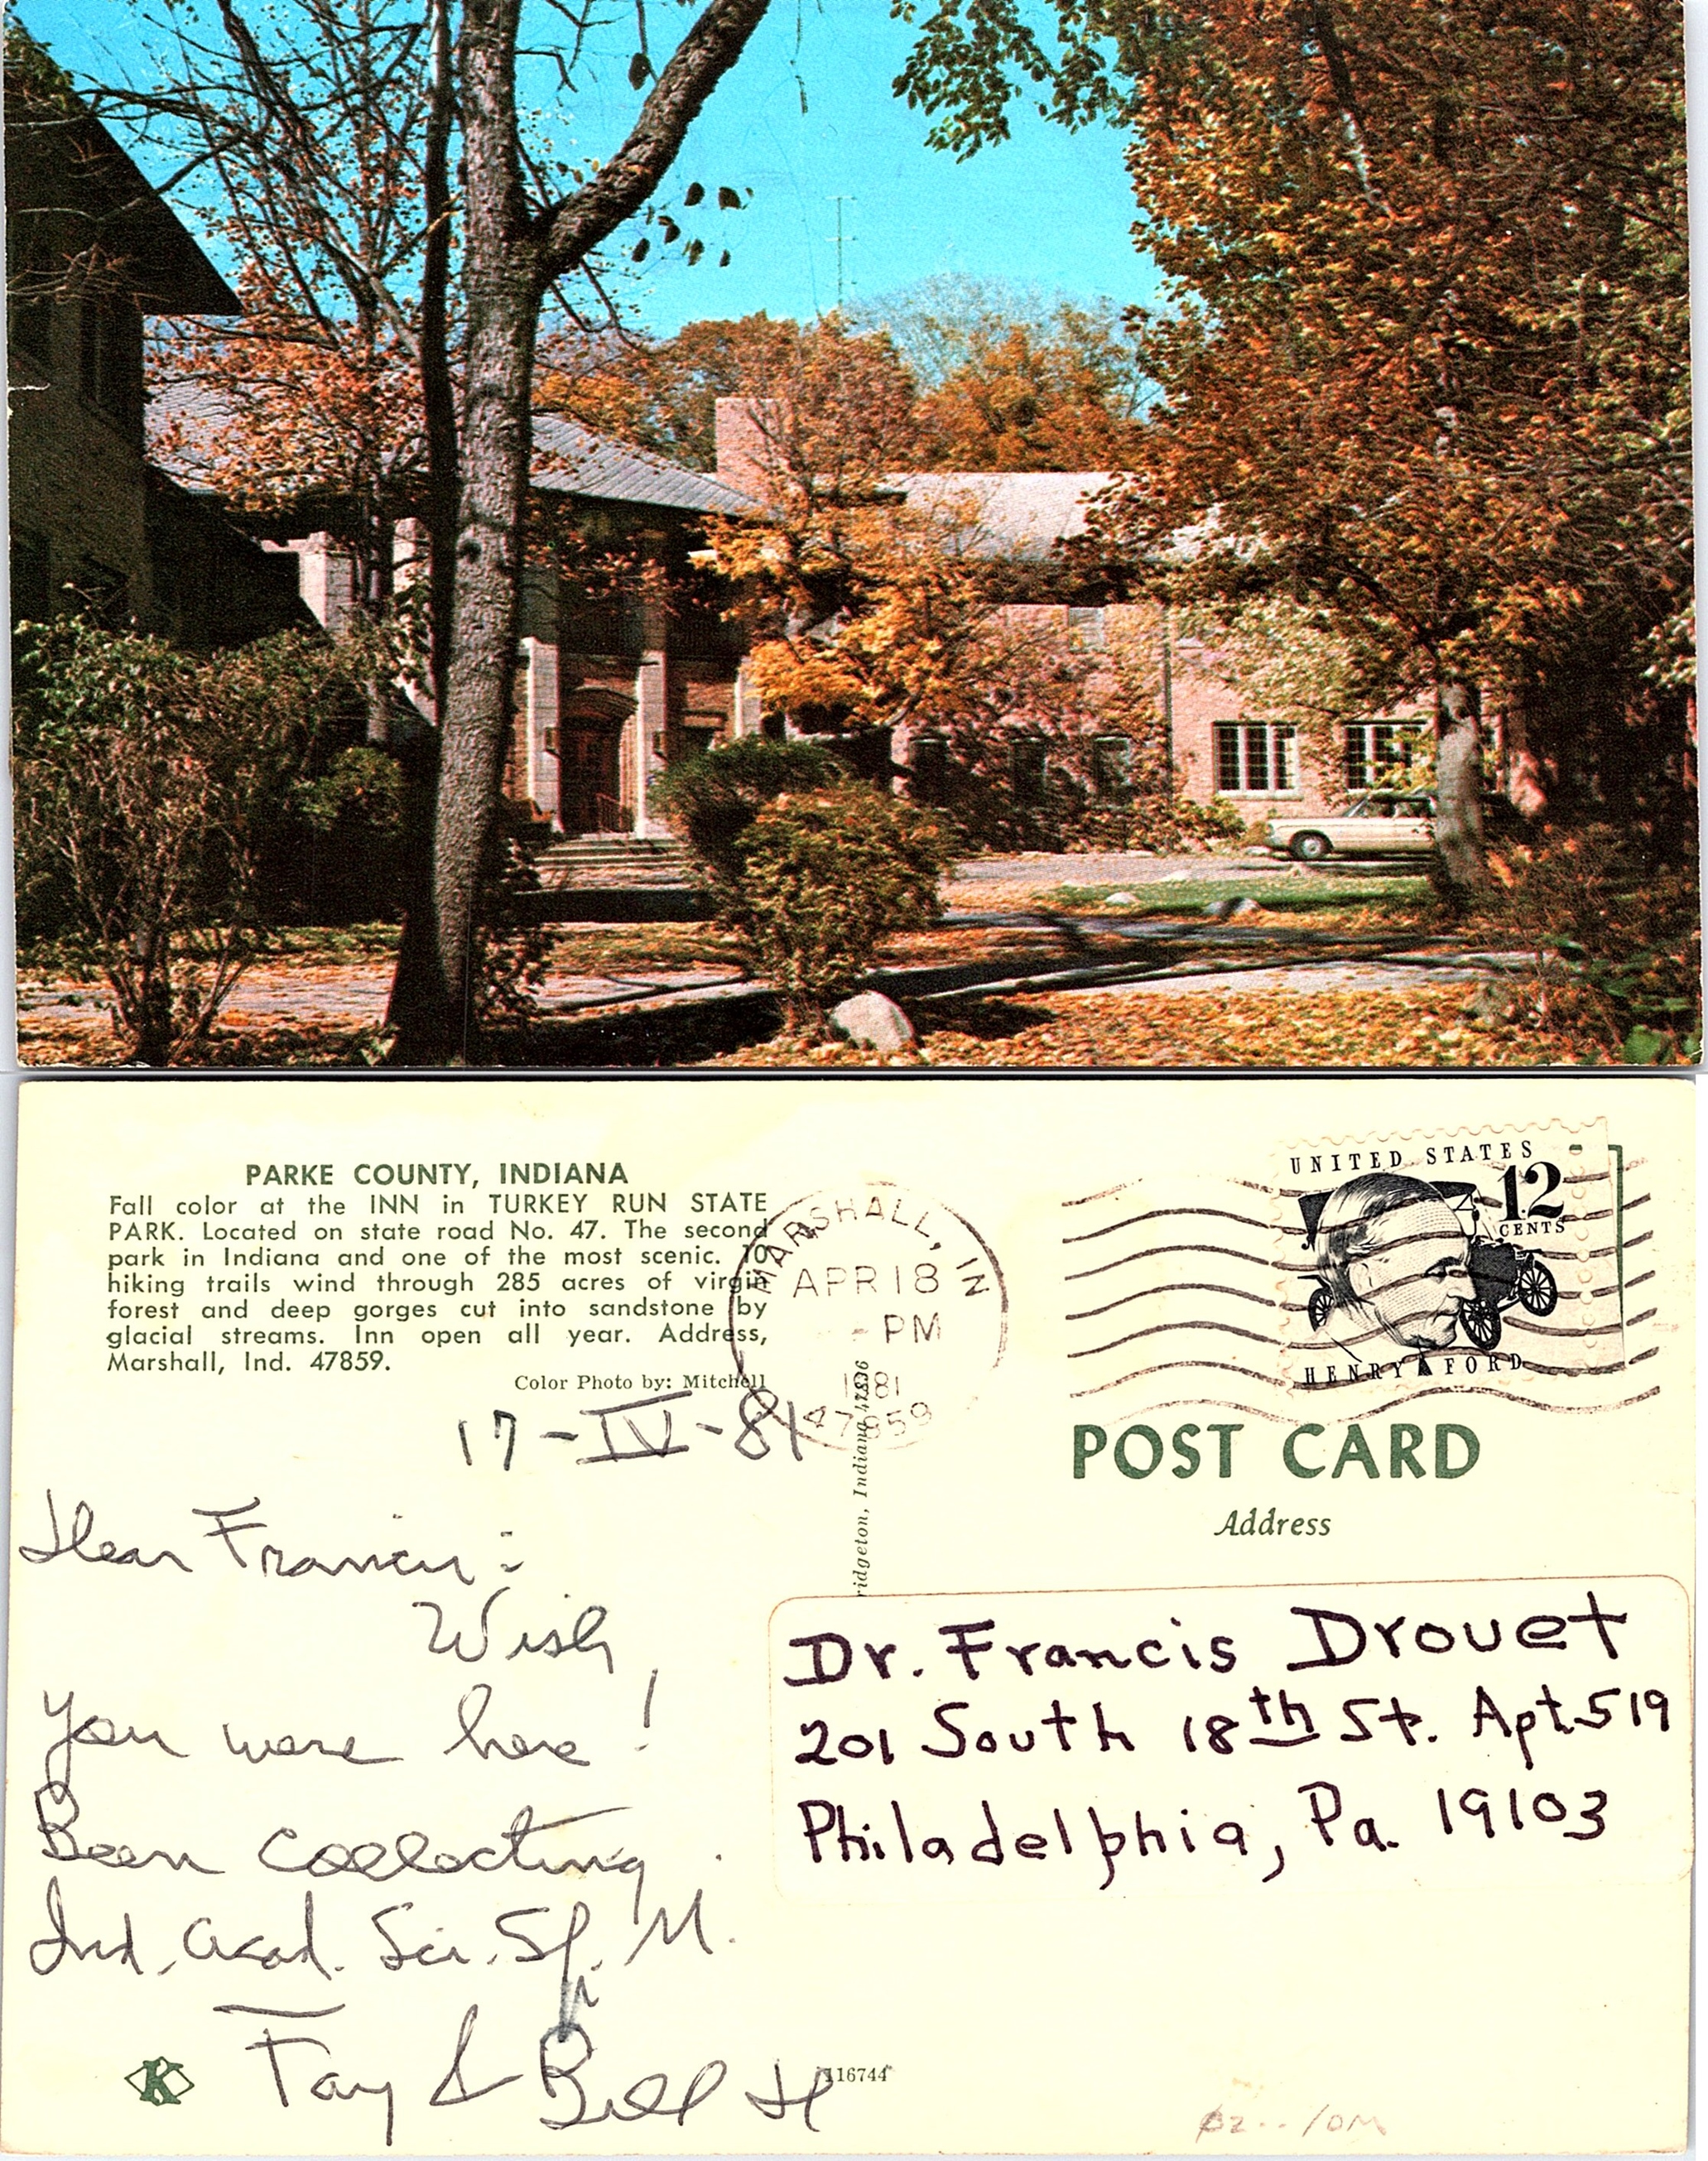 PARKE COUNTY, INDIANA
Fall color at the INN in TURKEY RUN STATE
PARK. Located on state road No. 47. The second
park in Indiana and one of the most scenic. 19
hiking trails wind through 285 acres of virgin
forest and deep gorges cut into sandstone by
glacial streams. Inn open all year. Address,
Marshall, Ind. 47859.
Color Photo by: Mitchell
17-IV-81
Dear Francis:
Wish
you were here!
Been collecting.
Ind. Acad. Sci. Sp. M.
Fay & Bill H
K
116744
ridgeton, Indiana 47836
MARSHALL, IN
APR 18
- PM
1981
47859
UNITED STATES
12
CENTS
HENRY FORD
POST CARD
Address
Dr. Francis Drouet
201 South 18th St. Apt 519
Philadelphia, Pa. 19103